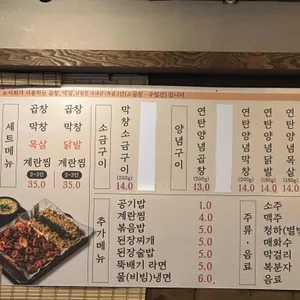 세트메뉴
곱창
막창
목살
계란찜
2~3인
35.0
곱창
막창
닭발
계란찜
2~3인
35.0
소금구이
막창소금구이
(200g)
14.0
양념구이
연탄양념곱창
(200g)
13.0
연탄양념막창
(200g)
14.0
연탄양념목살
(200g)
14.0
연탄양념닭발
14.0
추가메뉴
공기밥 1.0
계란찜 4.0
볶음밥
된장찌개
된장술밥 5.0
뚝배기 라면 5.0
물(비빔)냉면 6.0
주류·음료
소주
맥주
청하(별빛
매화수
막걸리
복분자
음료